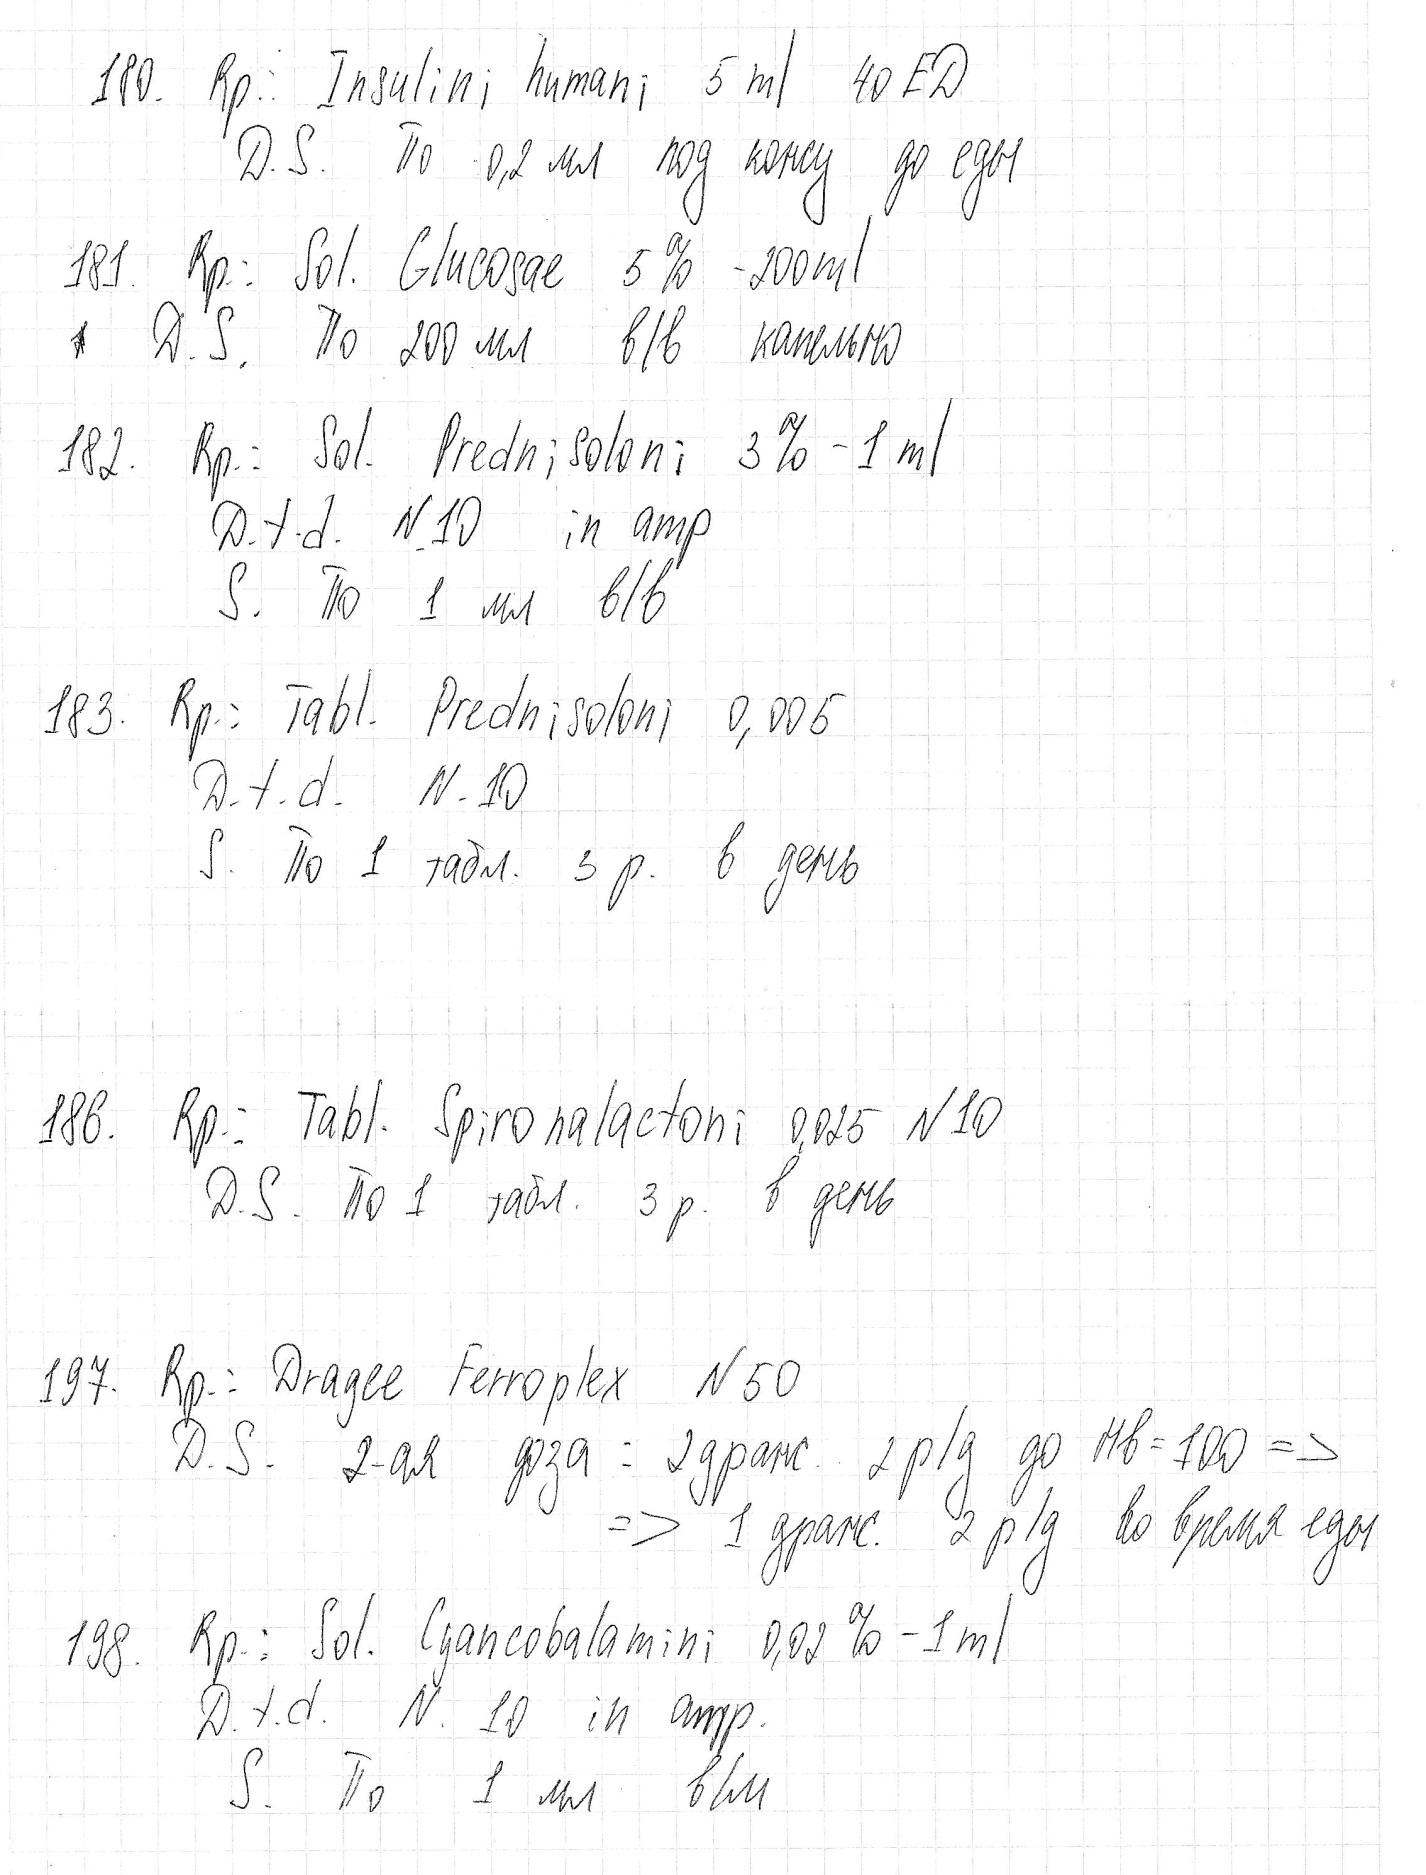 180. Rp.: Insulini humani 5 ml 40 ED
D.S. По 0,2 мл под кожу до еды
181. Rp.: Sol. Glucosae 5% - 200 ml
D.S. По 200 мл в/в капельно
182. Rp.: Sol. Prednisoloni 3% - 1 ml
D.t.d. N.10 in amp
S. По 1 мл в/в
183. Rp.: Tabl. Prednisoloni 0,005
D.t.d. N.10
S. По 1 табл. 3 р. в день
186. Rp.: Tabl. Spironalactoni 0,025 N10
D.S. По 1 табл. 3 р. в день
197. Rp.: Dragee Ferroplex N50
D.S. 2-ая доза: 2 драж. 2 р/д до Нв=100 =>
=> 1 драж. 2 р/д во время еды
198. Rp.: Sol. Cyancobalamini 0,02% - 1 ml
D.t.d. N. 10 in amp.
S. По 1 мл в/м